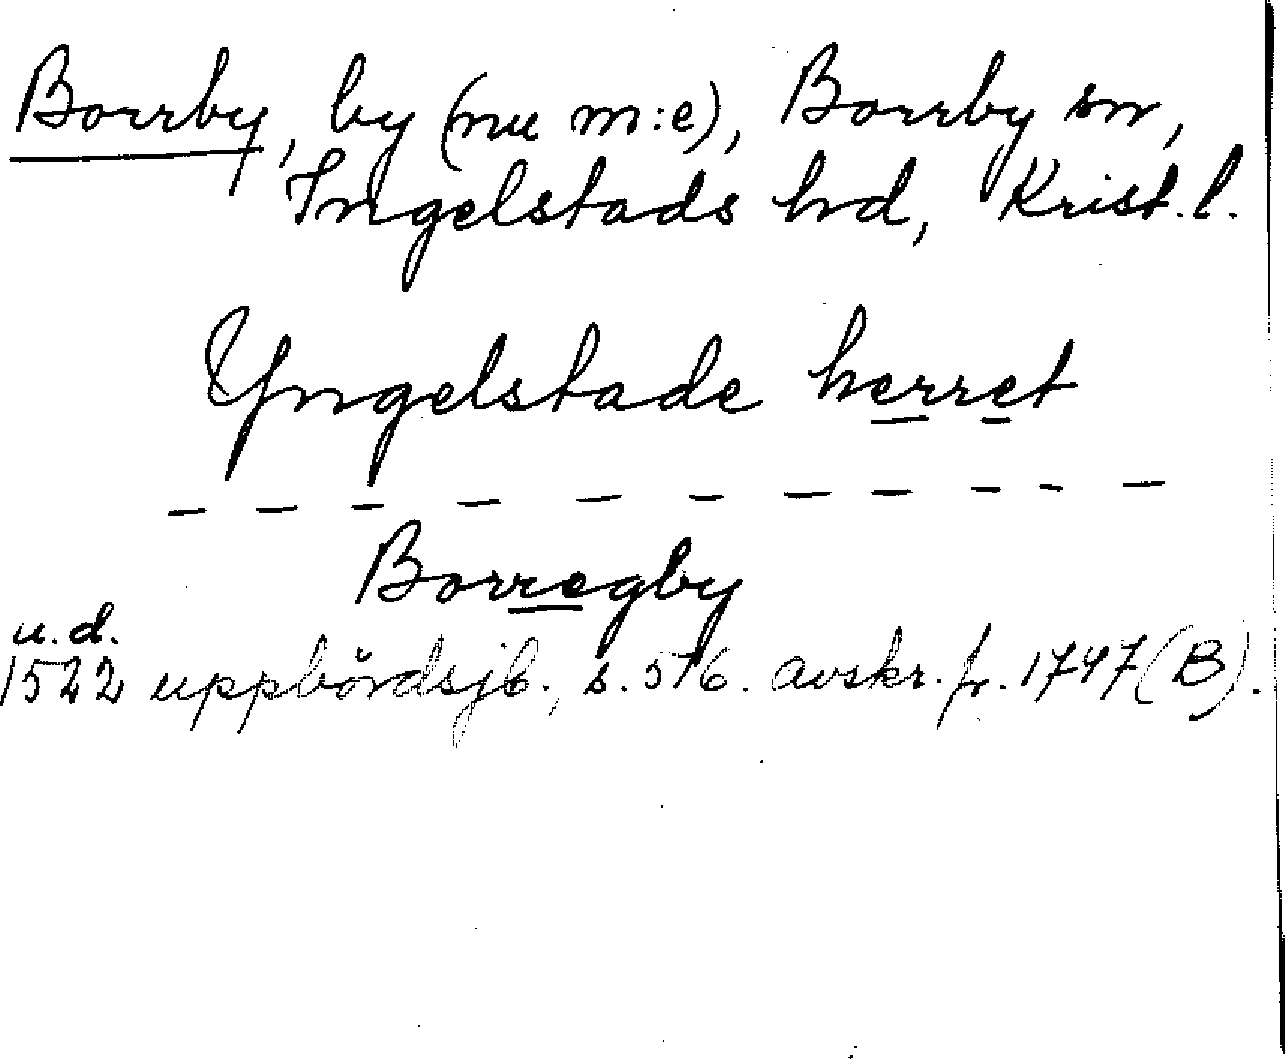 Borrby, by (nu m:e), Borrby sn,
Ingelstads hd, Krist. l.
Yngelstade herret
- - - - - - - - - - -
Borregby
u.d.
1522 uppbördsjb., s. 576. avskr. fr. 1747 (B).